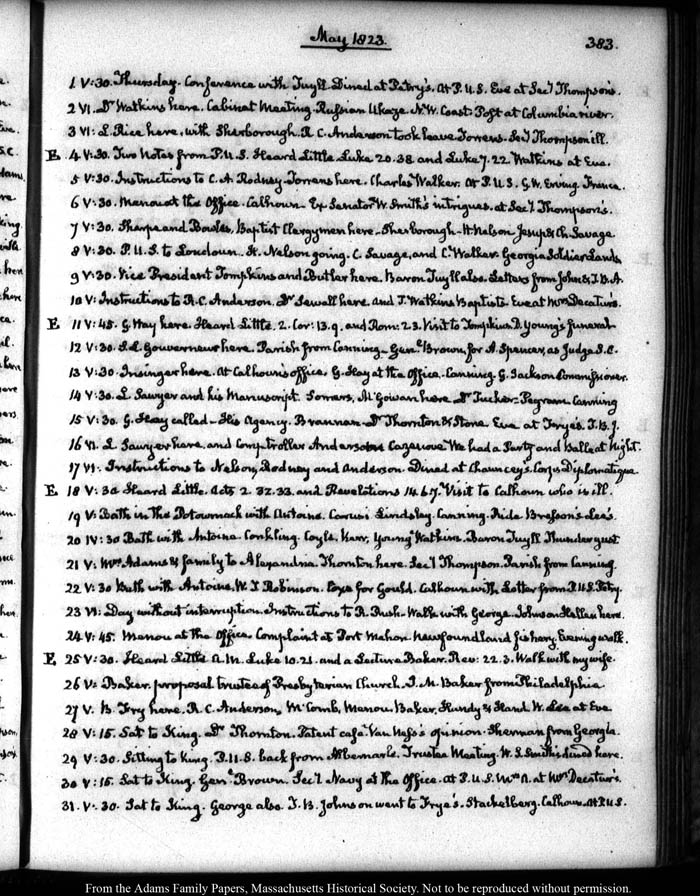 May 1823.
383.
1 V:30. Thursday. Conference with Tuyll. Dined at Petry's. At P.U.S. Eve at Sec'y Thompson's.
2 VI. Dr Watkins here. Cabinet Meeting. Russian Ukaze N.W. Coast Post at Columbia river.
3 VI: L. Rice here, with Sherborough. R. C. Anderson took leave. Torrens. Sec'y Thompson ill.
E 4 V:30. Two Notes from P.U.S. Heard Little. Luke 20.38 and Luke 7.22 Watkins at Eve.
5 V:30. Instructions to C. A. Rodney. Torrens here. Charles Walker. At P.U.S. G.W. Erving France.
6 V:30. Manou at the Office. Calhoun. Ex Senator W. Smith's intrigues. at Sec'y Thompson's.
7 V:30. Sharpe and Bowles, Baptist Clergymen here. Sherborough. H. Nelson Jesup & Ch. Savage
8 V:30. P.U.S. to Loudoun. H. Nelson going. C. Savage, and C. Walker. Georgia Soldier Lands
9 V:30. Vice President Tompkins and Butler here. Baron Tuyll also. Letters from John & T.B.A.
10 V: Instructions to R.C. Anderson. Dr Sewall here. and T. Watkins Baptists. Eve at Mrs Decatur's.
E 11 V:45. G. Hay here. Heard Little. 2. Cor: 13.9. and Rom: 2.3. Visit to Tompkins. D. Young's funeral
12 V:30. S.L. Gouverneur here. Parish from Canning. Genl Brown, for A. Spencer, as Judge S.C.
13 V:30. Insinger here. At Calhoun's office. G. Hay at the Office. Canning. G. Jackson Commissioner.
14 V:30. L. Sawyer and his Manuscript. Somers, McGowan here. Dr Tucker. Pegram Canning
15 V:30. G. Hay called. His Agency. Brannan. Dr Thornton & Stone. Eve at Frye's. T.B.J.
16 VI. L. Sawyer here, and Comptroller Anderson. Cazenove. We had a Party and Ball at Night.
17 VI. Instructions to Nelson, Rodney and Anderson. Dined at Chauncey's. Corps Diplomatique
E 18 V:30. Heard Little. Acts 2. 32.33. and Revelations 14.6.7. Visit to Calhoun who is ill.
19 V: Bath in the Potowmack with Antoine. Carusi Lindsley. Canning. Ride Bresson's Lee's.
20 IV:30 Bath with Antoine. Conkling Coyle, Kerr, Young Watkins. Baron Tuyll. Thunder gust
21 V: Mrs Adams & family to Alexandria. Thornton here. Sec'y Thompson. Parish from Canning
22 V:30 Bath with Antoine. W. I Robinson. Coxe for Gould. Calhoun with Letter from P.U.S. Petry.
23 VI: Day without interruption. Instructions to R. Rush. Walk with George. Johnson Hellen here.
24 V:45. Menou at the Office. Complaint at Port Mahon. Newfoundland fishery. Evening walk.
E 25 V:30. Heard Little A.M. Luke 10.21. and a Lecture Baker. Rev: 22.3. Walk with my wife.
26 V: Baker. proposal trustee of Presbyterian Church. J.M. Baker from Philadelphia
27 V. B. Fry here. R.C. Anderson, McComb, Menou. Baker, Handy & Hand W. Lee at Eve
28 V:15. Sat to King. Dr Thornton. Patent cafe Van Ness's opinion. Sherman from Georgia
29 V:30. Sitting to King. P.U.S. back from Albemarle. Trustee Meeting. W. S. Smiths dined here.
30 V:15. Sat to King. Genl Brown. Sec'y Navy at the Office. At P.U.S. Mrs A. at Mrs Decatur's.
31. V:30. Sat to King. George also. T. B. Johnson went to Frye's. Stackelberg. Calhoun. At P.U.S.
From the Adams Family Papers, Massachusetts Historical Society. Not to be reproduced without permission.